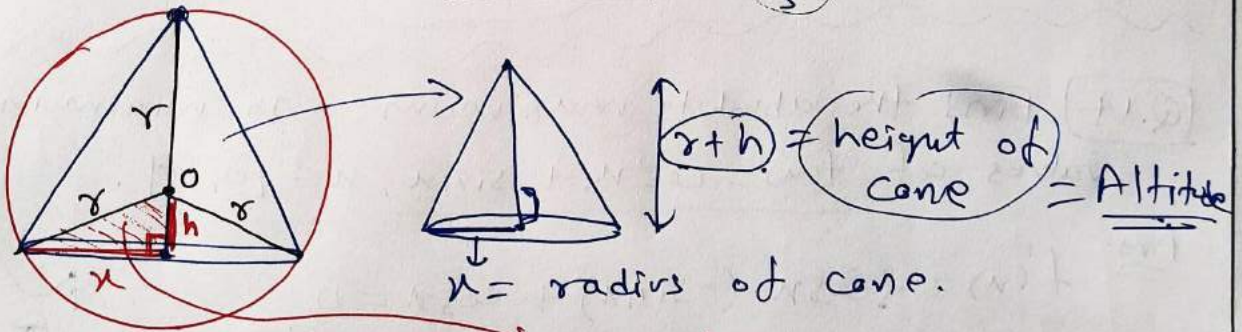 3
r
O
r
r
h
x
r+h = height of
cone
= Altitude
x = radius of cone.